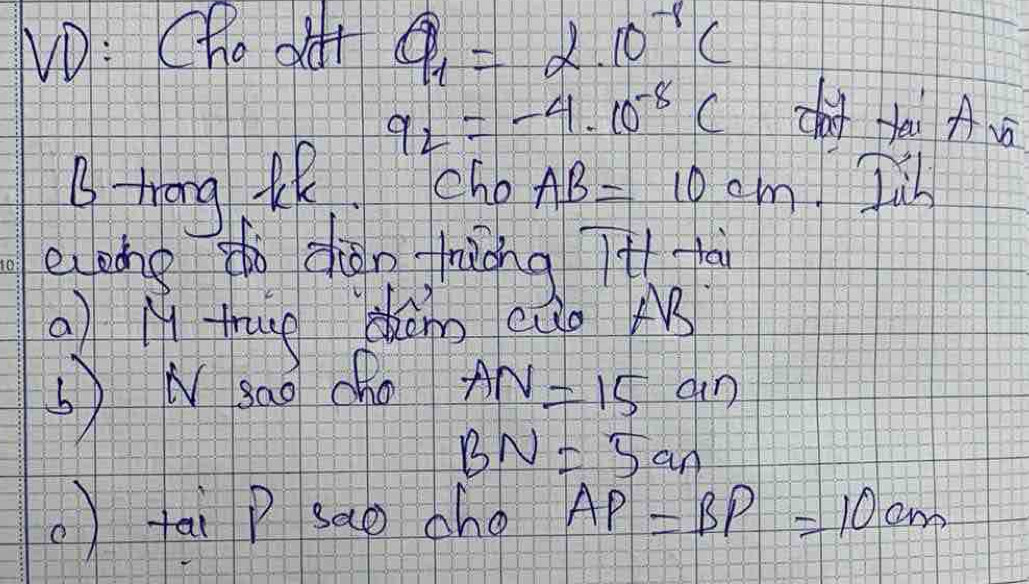 VD: Cho đtđ q₁ = 2.10⁻⁸ C
q₂ = -4.10⁻⁸ C đặt tại A và
B trong kk. Cho AB = 10 cm. Tính
cường độ điện trường TH tại
a) M trung điểm của AB
b) N sao cho AN = 15 cm
BN = 5 cm
c) tại P sao cho AP = BP = 10 cm